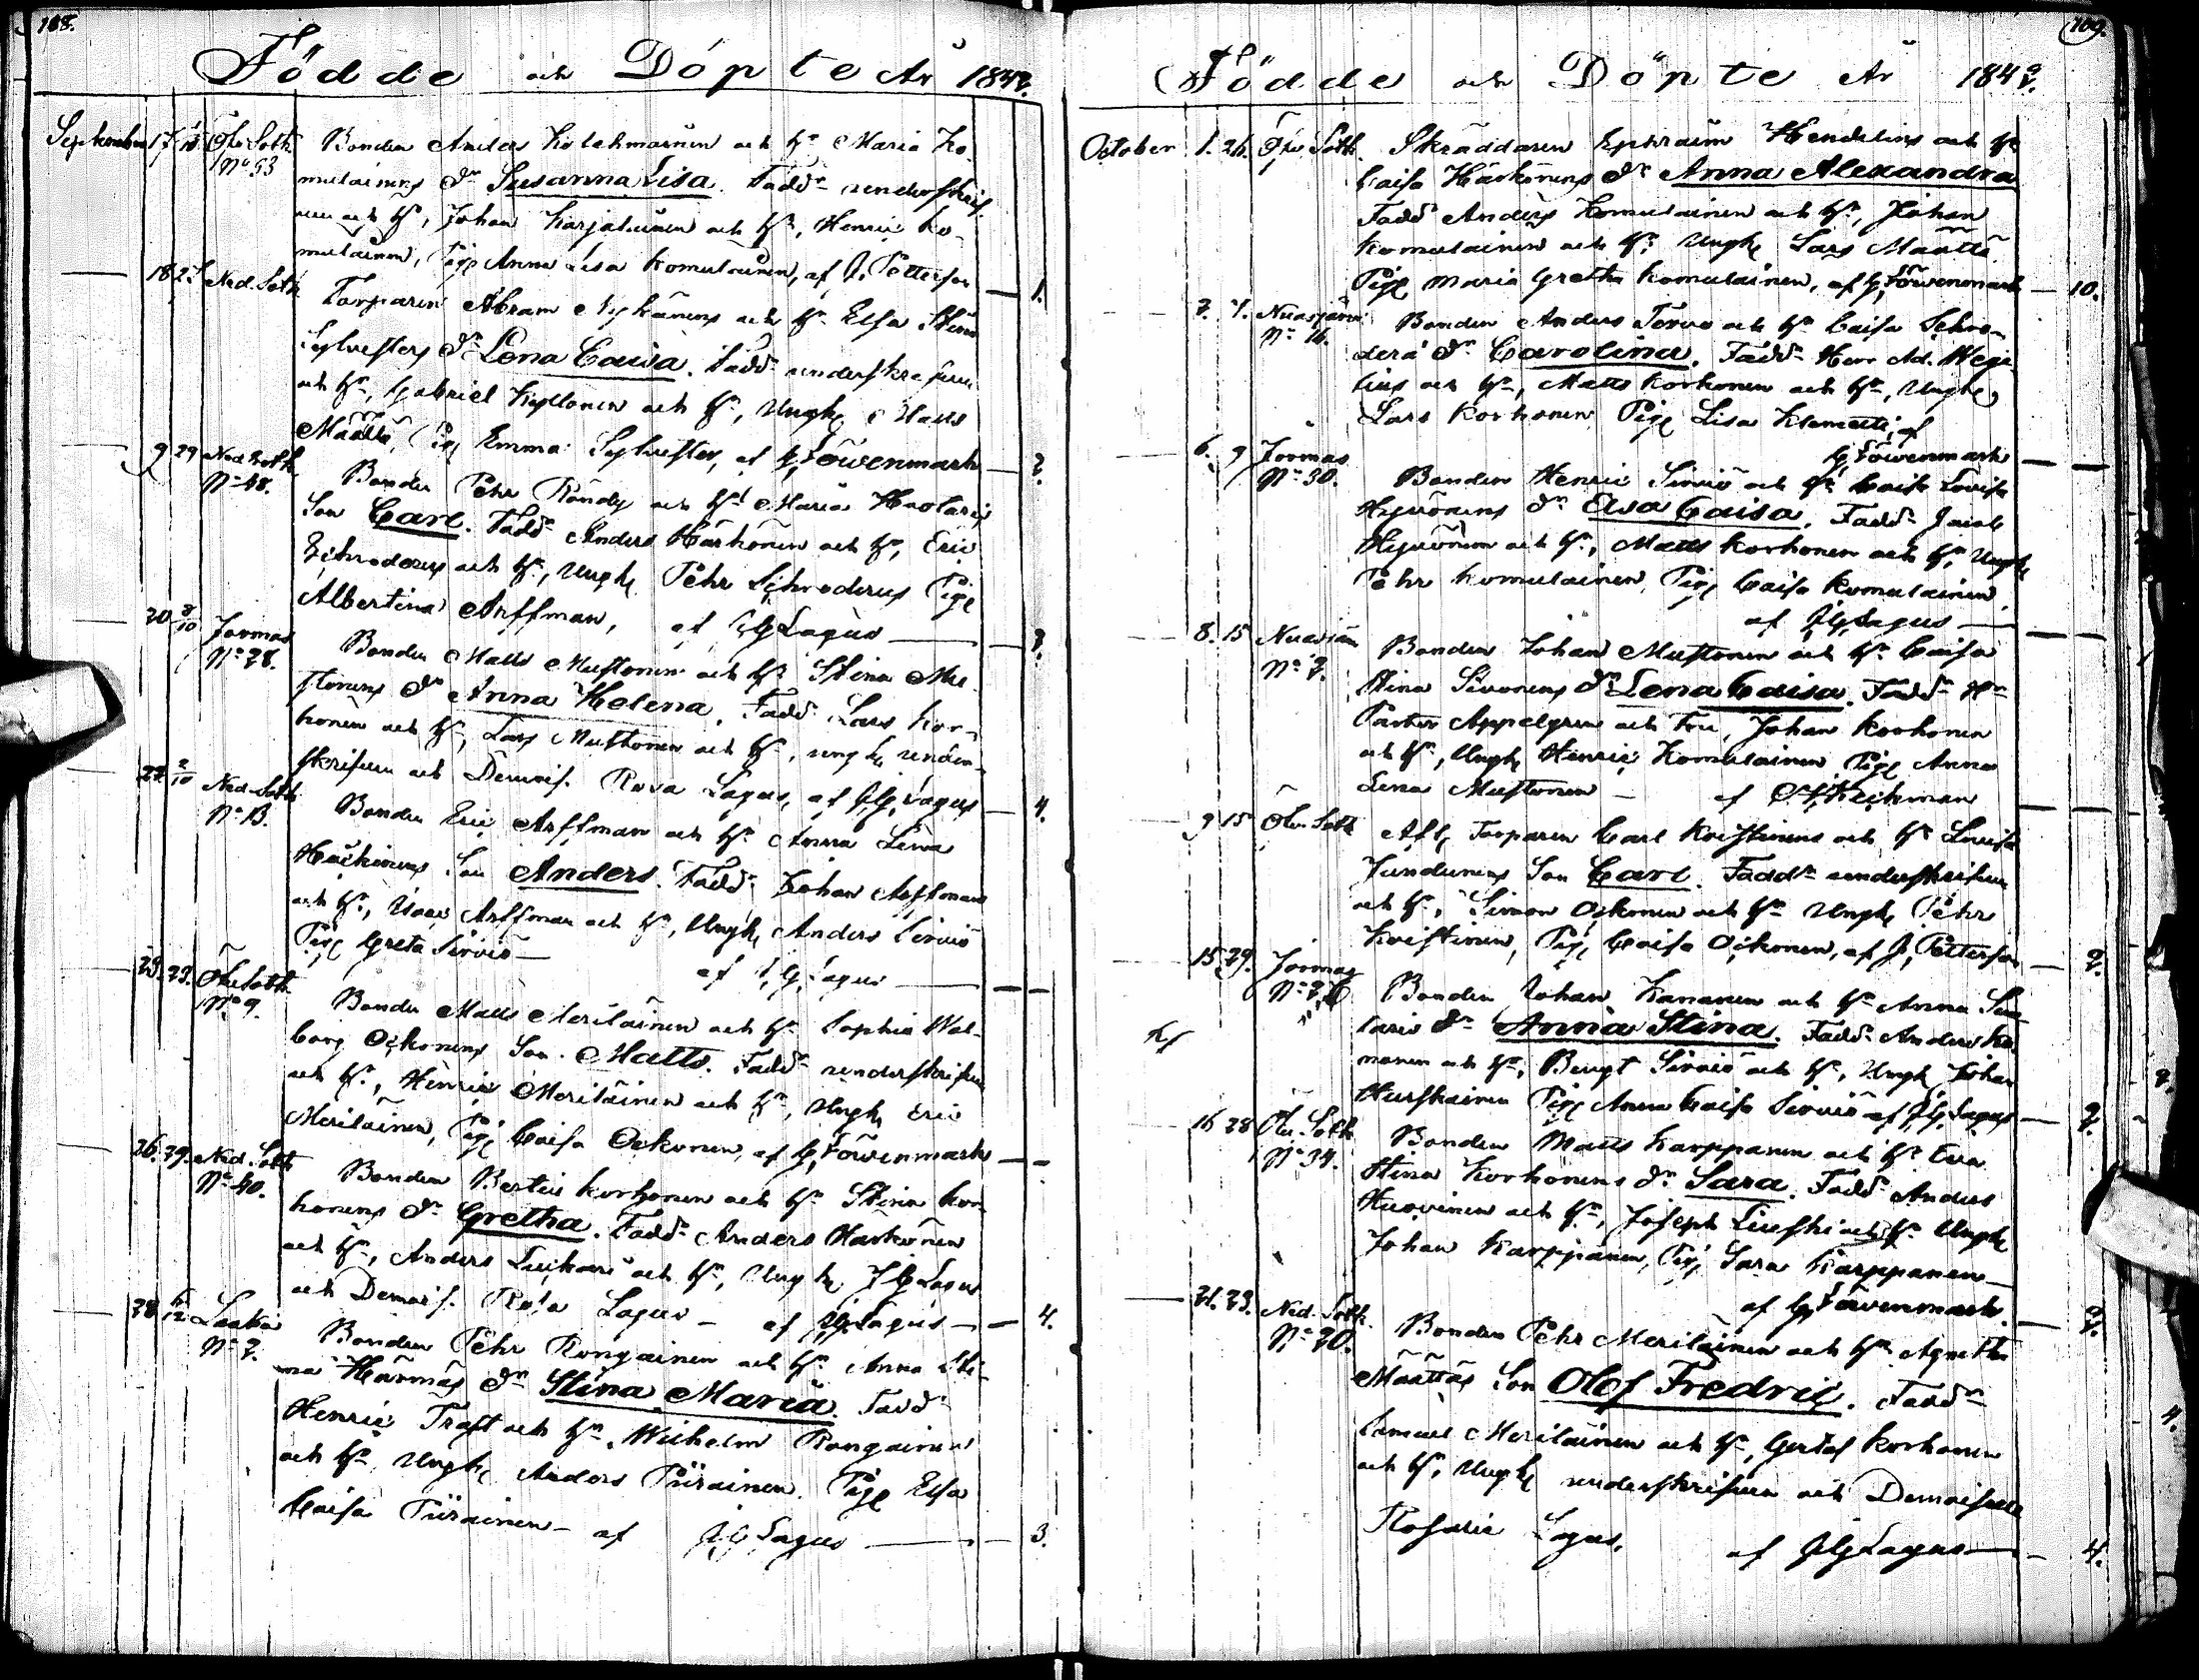 108.
Födde och Döpte År 1842.
September 17. 18 Öfv. Sotk. N:o 53 Bonden Anders Kolehmainen och h:u Maria Ko-
mulainens d:r Susanna Lisa. Fadd:r underskrif-
ven och h:u, Johan Karjalainen och h:u, Henric Ko-
mulainen, Pig. Anna Lisa Komulainen, af J. Petterson 1.
18 25 Ned. Sotk. Torparen Abram Nykänens och h:u Elsa Stina
Sylvesters d:r Lena Caisa. Fadd:r underskrifven
och h:u, Gabriel Kyllönen och h:u, Ungk. Matts
Määttä, Pig. Emma Sylvester, af G. Löwenmark 2.
9 29 Ned. Sotk. N:o 48. Bonden Pehr Röndy och h:u Maria
Son Carl. Fadd:r Anders Härkönen och h:u, Eric
Schroderus och h:u, Ungk. Pehr Schroderus Pig.
Albertina Arffman, af J G Lagus 3.
20 8/10 Jormas N:o 28. Bonden Matts Mustonen och h:u Stina Mu-
stonens d:r Anna Helena. Fadd:r Lars Kor-
honen och h:u, Lars Mustonen och h:u, ungk. under-
skrifven och Demois. Rosa Lagus, af J G Lagus 4.
22 2/10 Ned. Sotk. N:o 13. Bonden Eric Arffman och h:u Anna Lena
Heickinens Son Anders. Fadd:r Johan Arffman
och h:u, Isaac Arffman och h:u, Ungk. Anders Sirviö
Pig. Greta Sirviö af J G Lagus
23. 23. Öfv. Sotk. N:o 9. Bonden Matts Meriläinen och h:u Sophia Wal-
borg Ockonens Son Matts. Fadd:r underskrifven
och h:u, Henric Meriläinen och h:u, Ungk. Eric
Meriläinen, Pig. Caisa Ockonen, af G. Löwenmark
26. 29. Ned. Sotk. N:o 40. Bonden Bertil Korhonen och h:u Stina Kor-
honens d:r Gretha. Fadd:r Anders Härkönen
och h:u, Anders Leickari och h:u, Ungk. J G Lagus
och Demois. Rosa Lagus af J G Lagus 4.
28 Laaka N:o 2. Bonden Pehr Rongainen och h:u Anna Sti-
na Härmäs d:r Stina Maria. Fadd:r
Henric Trast och h:u, Wilhelm Rongainen
och h:u Ungk. Anders Piirainen. Pig. Elsa
Caisa Piirainen af J G Lagus 3.
109.
Födde och Döpte År 1842.
October 1. 26. Öfv. Sotk. Skräddaren Ephraim Hendelins och h:u
Caisa Härkönens d:r Anna Alexandra
Fadd:r Anders Komulainen och h:u, Johan
Komulainen och h:u Ungk. Lars Määttä
Pig. Maria Gretha Komulainen, af G. Löwenmark 10.
Nuasjärvi N:o 16. Bonden Anders Tervo och h:u Caisa Schro-
dera d:r Carolina. Fadd:r Herr Ad. Wege-
lius och h:u, Matts Korhonen och h:u, Ungk.
Lars Korhonen Pig. Lisa Klemetti, af
G. Löwenmark
6. 9 Jormas N:o 30. Bonden Henric Sirviö och h:u Caisa Lovisa
Hyvönens d:r Elsa Caisa. Fadd:r Jacob
Hyvönen och h:u, Matts Korhonen och h:u, Ungk.
Pehr Komulainen, Pig. Caisa Komulainen,
af J G Lagus
8. 15 Nuasjärvi N:o 2. Bonden Johan Mustonen och h:u Caisa
Stina Sivonens d:r Lena Caisa. Fadd:r H:r
Pastor Appelgren och Fru, Johan Korhonen
och h:u, Ungk. Henric Komulainen Pig. Anna
Lena Mustonen af Heickman
9 15 Öfv. Sotk. Afl. Torparen Carl Kristinens och h:u Lovisa
Jundunens Son Carl. Fadd:r underskrifven
och h:u, Simon Ockonen och h:u Ungk. Pehr
Kristinen, Pig. Caisa Ockonen, af J. Petterson 2.
15 29. Jormas Bonden Johan Kananen och h:u Anna
d:r Anna Stina. Fadd:r Anders Ka-
nanen och h:u, Bengt Sirviö och h:u, Ungk. Johan
Hurskainen Pig. Anna Caisa Sirviö af J G Lagus 2.
16 28 Öfv. Sotk. N:o 34. Bonden Matts Karppanen och h:u Eva
Stina Korhonens d:r Sara. Fadd:r Anders
Huovinen och h:u, Joseph Liuski och h:u Ungk.
Johan Karppanen, Pig. Sara Karppanen
af G. Löwenmark. 2.
21. 23. Ned. Sotk. N:o 20. Bonden Pehr Meriläinen och h:u Agnetha
Määttäs Son Olof Fredric. Fadd:r
Samuel Meriläinen och h:u, Gustaf Korhonen
och h:u, Ungk. underskrifven och Demoiselle
Rosalie Lagus, af J G Lagus 4.